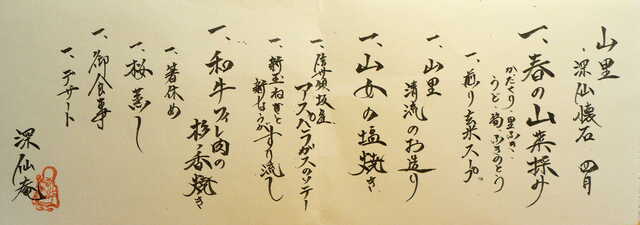 山里
深仙懐石 四月
一、春の山菜採み
かたくり、里ふき、
うど、筍、ふきのとう
一、煎り玄米スープ
一、山里
清流のお造り
一、山女の塩焼き
一、信女領坂産
アスパラガスのソテー
一、新玉ねぎと
新ごぼうのすり流し
一、和牛フィレ肉の
杉香焼き
一、箸休め
一、桜蒸し
一、御食事
一、デザート
深仙庵